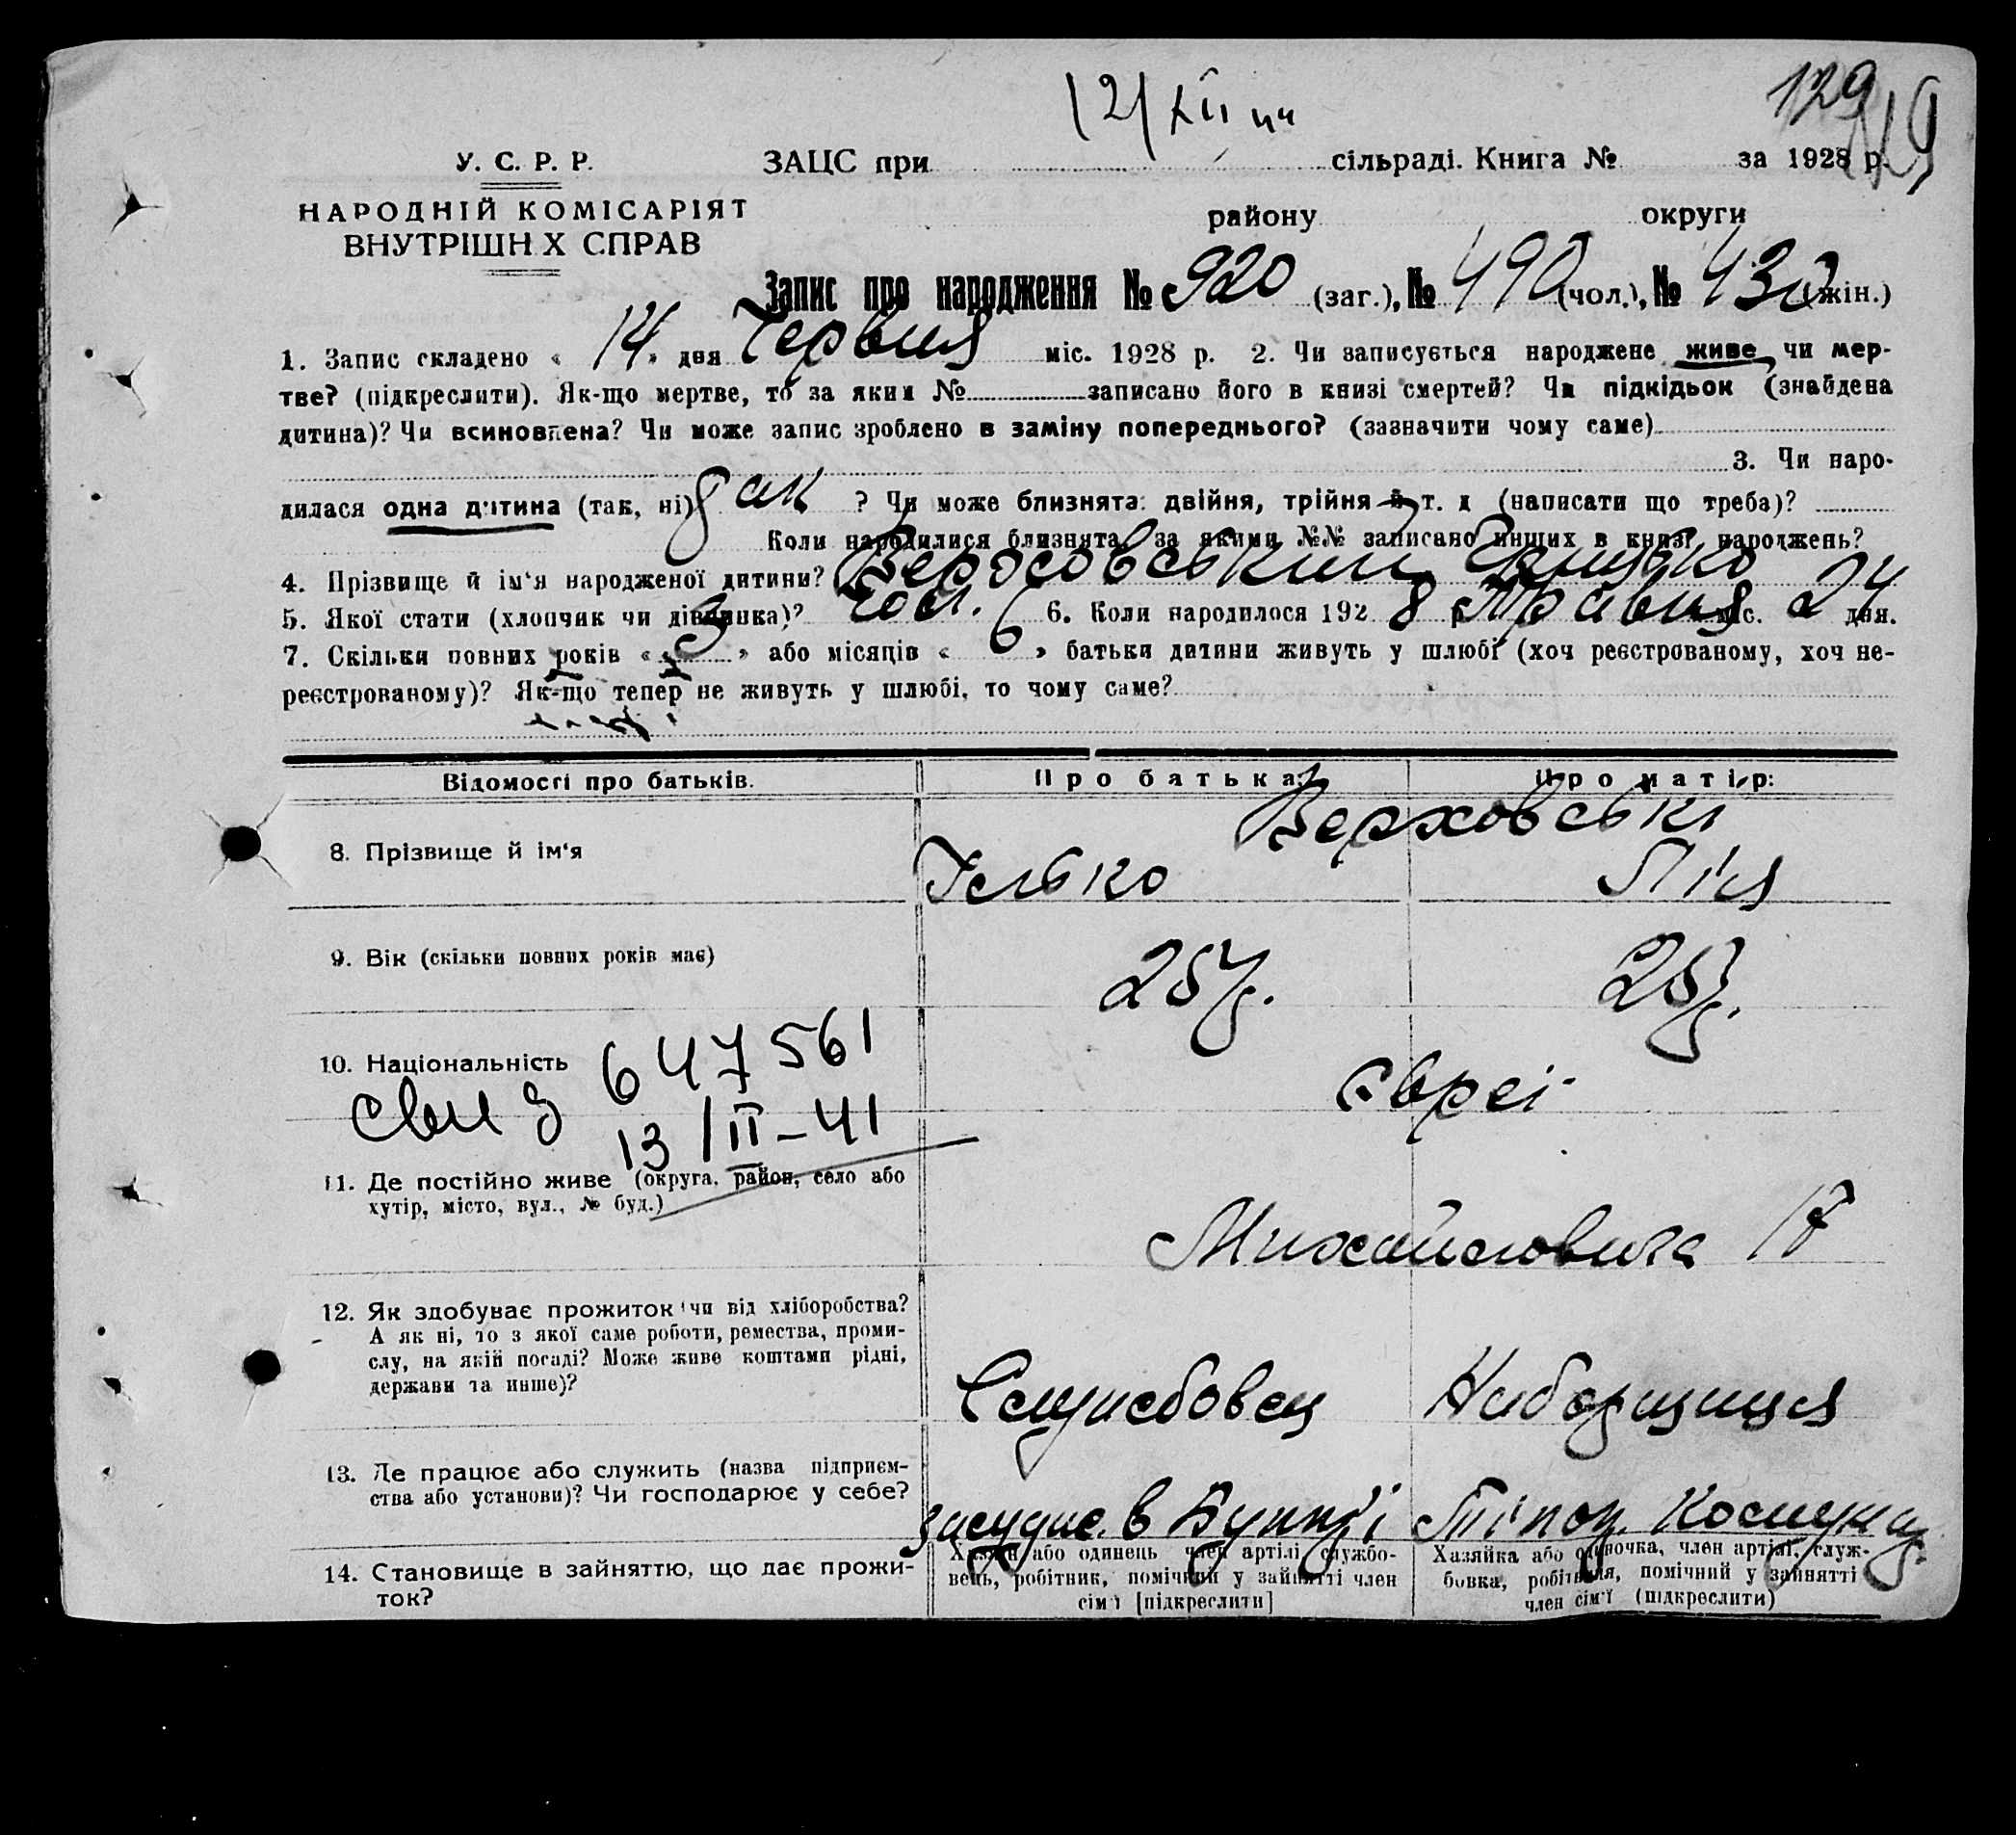 129
У. С. Р. Р.
ЗАЦС при сільраді. Книга № за 1928 р.
НАРОДНІЙ КОМІСАРІЯТ
району округи
ВНУТРІШН Х СПРАВ
Запис про народження № 920 (заг.), № 490 (чол.), № 430 (жін.)
1. Запис складено « 14 » дня Червня міс. 1928 р. 2. Чи записується народжене живе чи мер-
тве? (підкреслити). Як-що мертве, то за яким № записано його в книзі смертей? Чи підкідьок (знайдена
дитина)? Чи всиновлена? Чи може запис зроблено в заміну попереднього? (зазначити чому саме)
3. Чи наро-
дилася одна дитина (так, ні) так ? Чи може близнята: двійня, трійня й т. д (написати що треба)?
Коли народилися близнята, за якими №№ записано инших в книзі народжень?
4. Прізвище й ім'я народженої дитини?
5. Якої стати (хлопчик чи дівчинка)? чол. 6. Коли народилося 1928 р. Травня міс. 24 дня.
7. Скільки повних років « 3 » або місяців « » батьки дитини живуть у шлюбі (хоч реєстрованому, хоч не-
реєстрованому)? Як-що тепер не живуть у шлюбі, то чому саме?
Відомості про батьків. Про батька: Про матір:
Верховські
8. Прізвище й ім'я Ілько
9. Вік (скільки повних років має) 25 р. 25 р.
10. Національність 647561 євреі
13/II-41
11. Де постійно живе (округа, район, село або
хутір, місто, вул., № буд.) Михайловича 17
12. Як здобуває прожиток (чи від хліборобства?
А як ні, то з якої саме роботи, ремества, проми-
слу, на якій посаді? Може живе коштами рідні,
держави та инше)? Службовец Наборщиця
13. Де працює або служить (назва підприєм-
ства або установи)? Чи господарює у себе? в
14. Становище в зайняттю, що дає прожи-
ток?
Хазяїн або одинець член артілі, службо-
вець, робітник, помічний у зайнятті член
сім'ї [підкреслити]
Хазяйка або одиночка, член артілі, служ-
бовка, робітниця, помічний у зайнятті
член сім'ї (підкреслити)